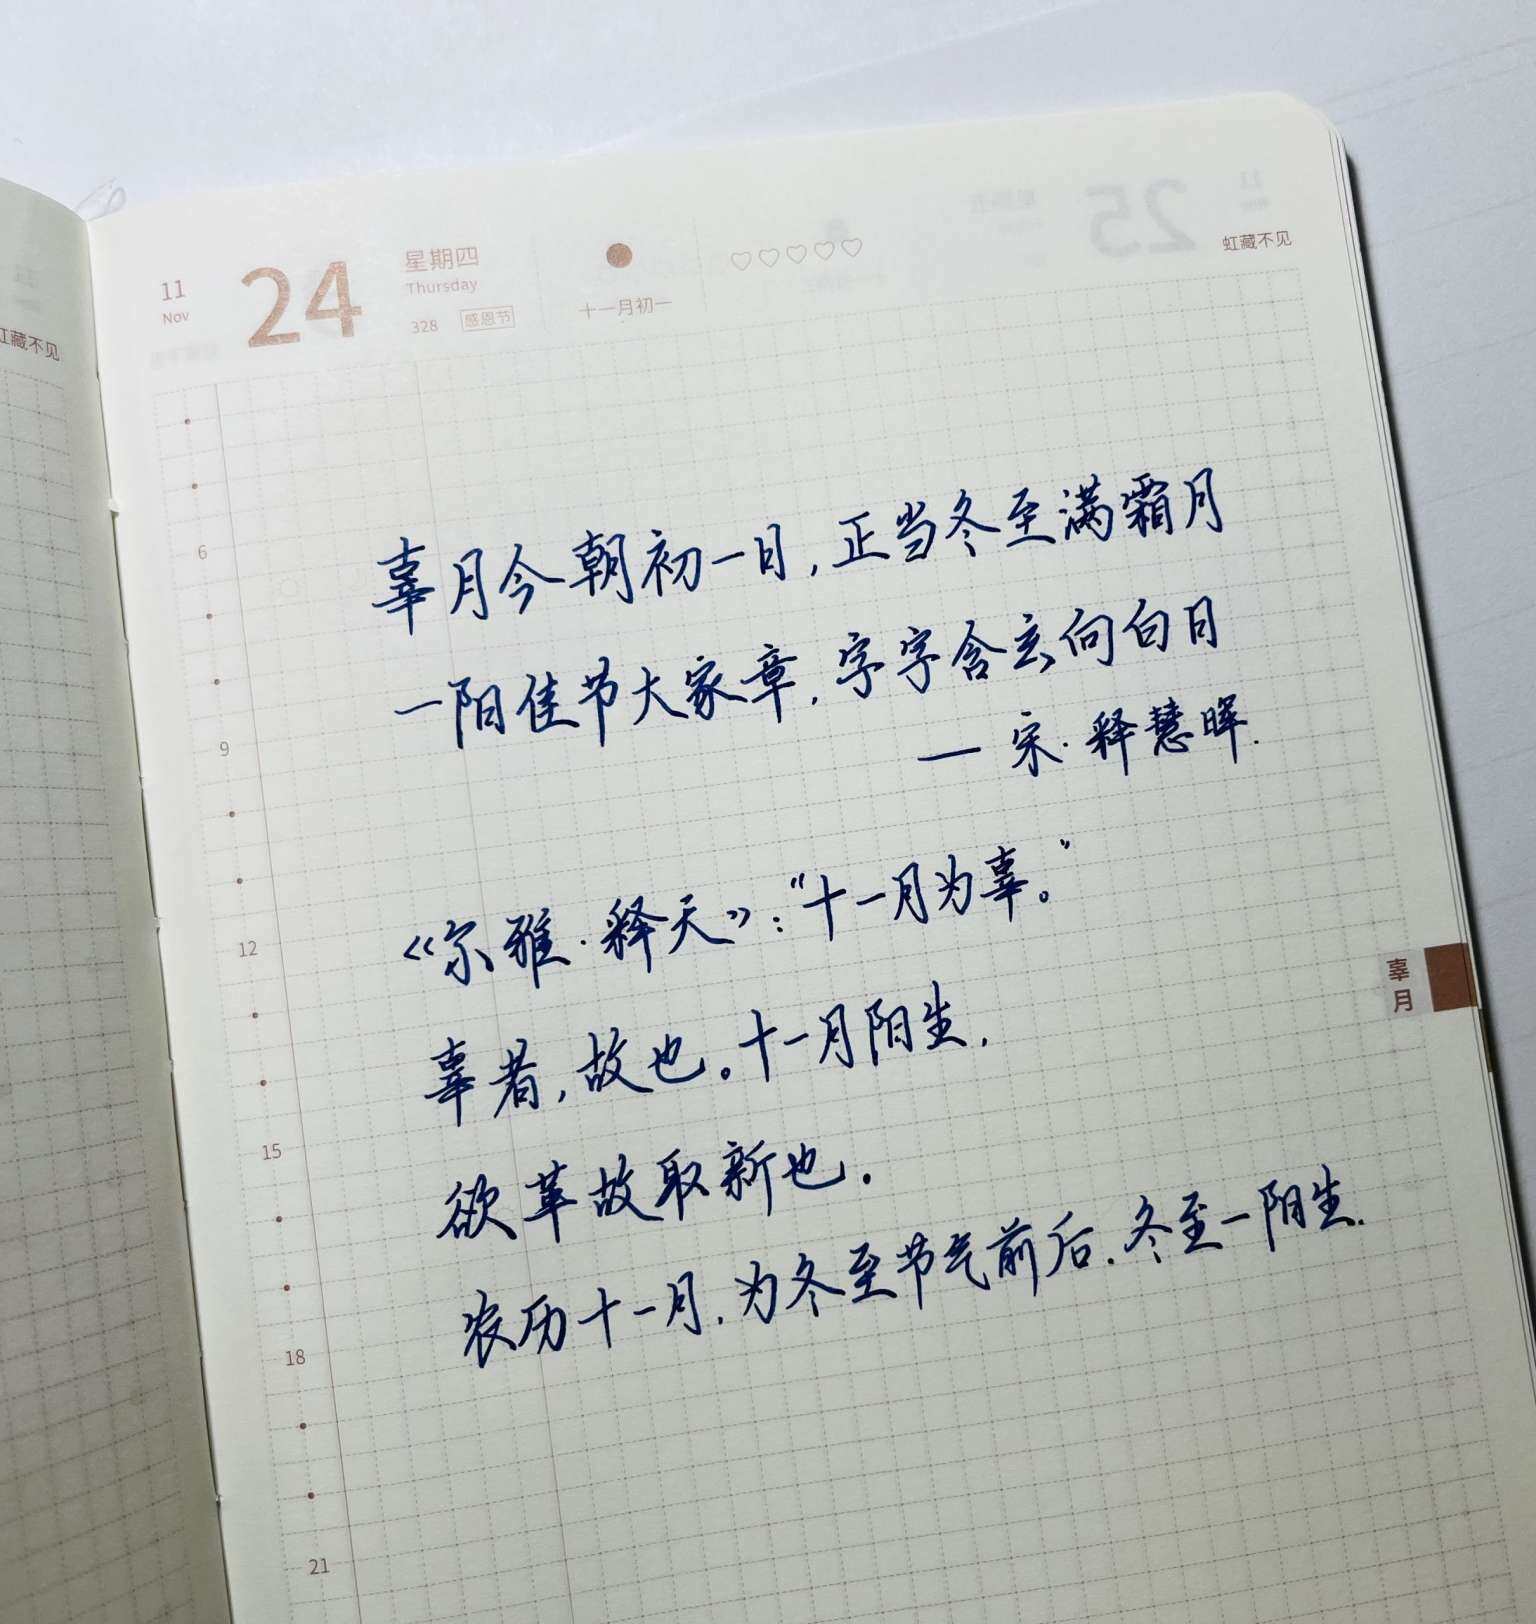 11
Nov
24
星期四
Thursday
328 感恩节
十一月初一
虹藏不见
虹藏不见
25
6
9
12
15
18
21
辜月今朝初一日,正当冬至满霜月
一阳佳节大家章,字字含玄向白日
— 宋·释慧晖.
《尔雅·释天》:“十一月为辜。”
辜者,故也。十一月阳生,
欲革故取新也.
农历十一月,为冬至节气前后.冬至一阳生.
辜月